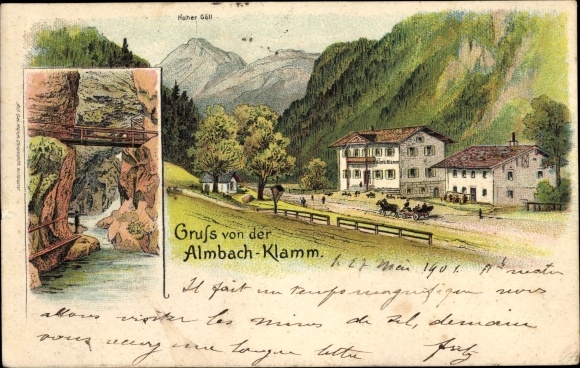 Hoher Göll
Gruſs von der
Almbach-Klamm.
27 Mai 1901.
Il fait un temps magnifique nous
allons visiter les mines de sel, demain
vous aurez une longue lettre Fritz